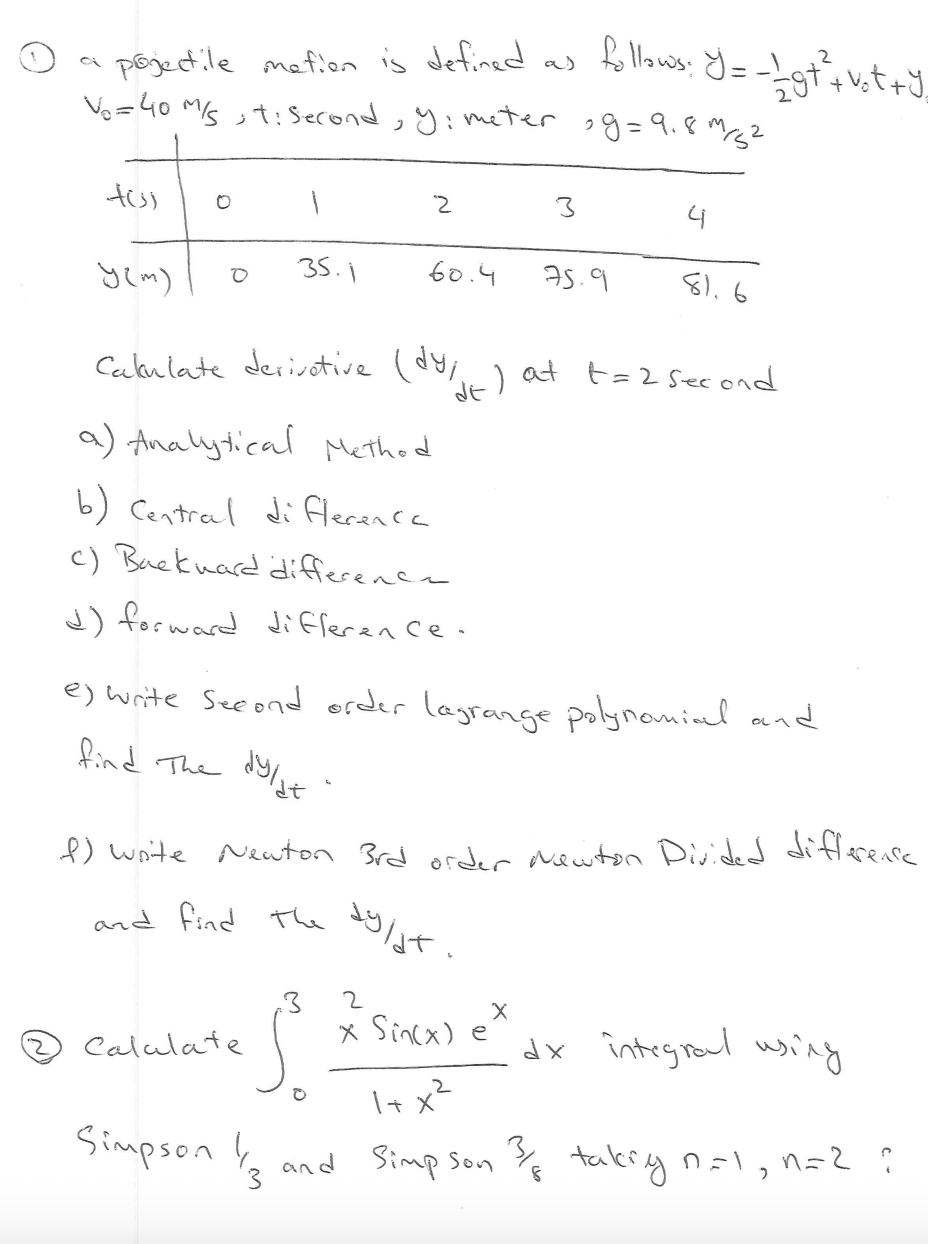 ① a pojectile motion is defined as follows: y = -1/2 gt² + V₀t + y
V₀ = 40 m/s, t: second, y: meter, g = 9.8 m/s²
t(s) 0 1 2 3 4
y(m) 0 35.1 60.4 75.9 81.6
Calculate derivative (dy/dt) at t = 2 second
a) Analytical Method
b) Central difference
c) Backward difference
d) forward difference.
e) write second order lagrange polynomial and
find The dy/dt.
f) write Newton 3rd order Newton Divided difference
and find the dy/dt.
② Calculate ∫₀³ x² Sin(x) eˣ / (1 + x²) dx integral using
Simpson 1/3 and Simpson 3/8 taking n=1, n=2 ?